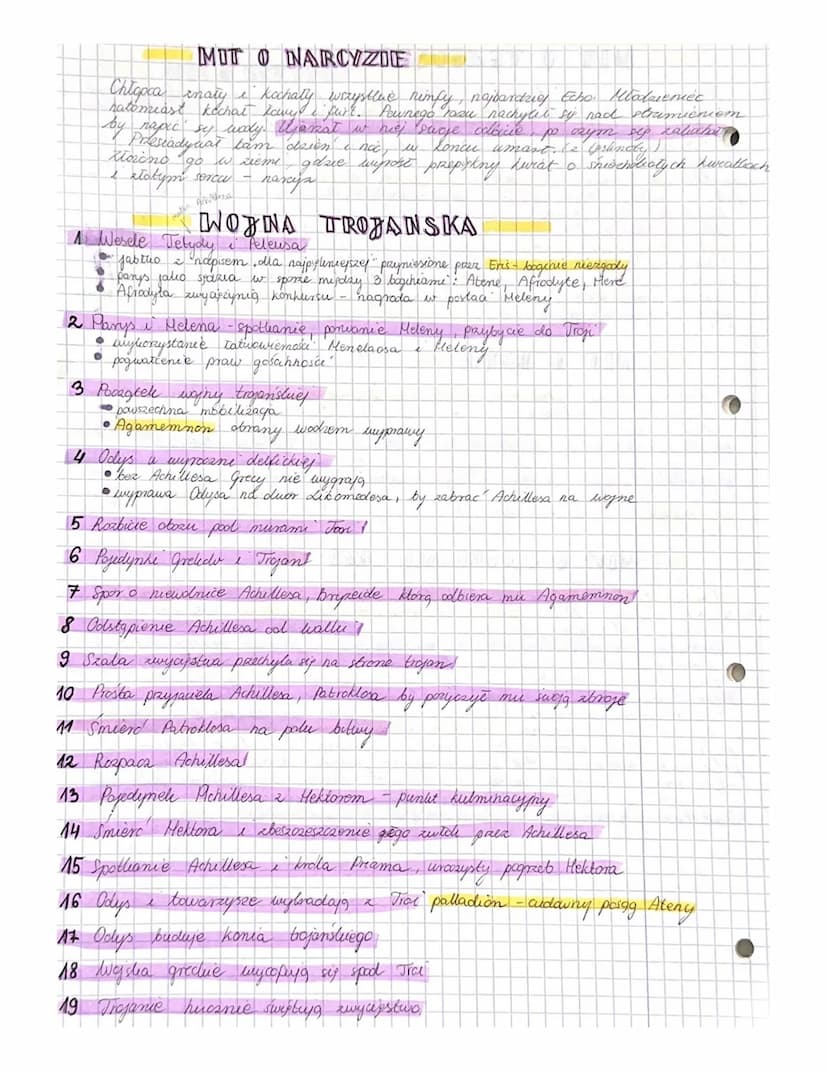 MIT O NARCYZIE
Chłopca znały i kochały wszystkie nimfy, najbardziej Echo. Młodzieniec
natomiast kochał łowy i flirt. Pewnego razu nachylił się nad strumieniem
by napić się wody. Ujrzał w niej swoje odbicie, po czym się zakochał
Przesiadywał tam dzień i noc, w końcu umarł. (z tęsknoty)
złożono go w ziemi, gdzie wyrósł przepiękny kwiat o śnieżnobiałych kwiatkach
i złotym sercu - narcyz
Achillesa
WOJNA TROJANSKA
1 Wesele Tetydy i Peleusa
• jabłko z napisem "dla najpiękniejszej" przyniesione przez Eris - boginię niezgody
• parys jako sędzia w sporze między 3 boginiami: Atenę, Afrodytę, Herę
• Afrodyta zwyciężynią konkursu - nagroda w postaci Heleny
2 Parys i Helena - spotkanie, porwanie Heleny, przybycie do Troji
• wykorzystanie łatwowierności Menelaosa i Heleny
• pogwałcenie praw gościnności
3 Początek wojny trojańskiej
• powszechna mobilizacja
• Agamemnon obrany wodzem wyprawy
4 Odys u wyroczni delfickiej
• bez Achillesa Grecy nie wygrają
• wyprawa Odysa na dwór Likomedesa, by zabrać Achillesa na wojnę
5 Rozbicie obozu pod murami Troi
6 Pojedynki Greków i Trojan
7 Spór o niewolnice Achillesa, Bryzeidę którą odbiera mu Agamemnon
8 Odstąpienie Achillesa od walki
9 Szala zwycięstwa przechyla się na stronę trojan
10 Prośba przyjaciela Achillesa, Patroklosa by pożyczył mu swoją zbroję
11 Śmierć Patroklosa na polu bitwy
12 Rozpacz Achillesa
13 Pojedynek Achillesa z Hektorem - punkt kulminacyjny
14 Śmierć Hektora i zbeszczeszczenie jego zwłok przez Achillesa
15 Spotkanie Achillesa i króla Priama, uroczysty pogrzeb Hektora
16 Odys i towarzysze wykradają z Troi palladion - cudowny posąg Ateny
17 Odys buduje konia trojańskiego
18 Wojska greckie wycofują się spod Troi
19 Trojanie hucznie świętują zwycięstwo